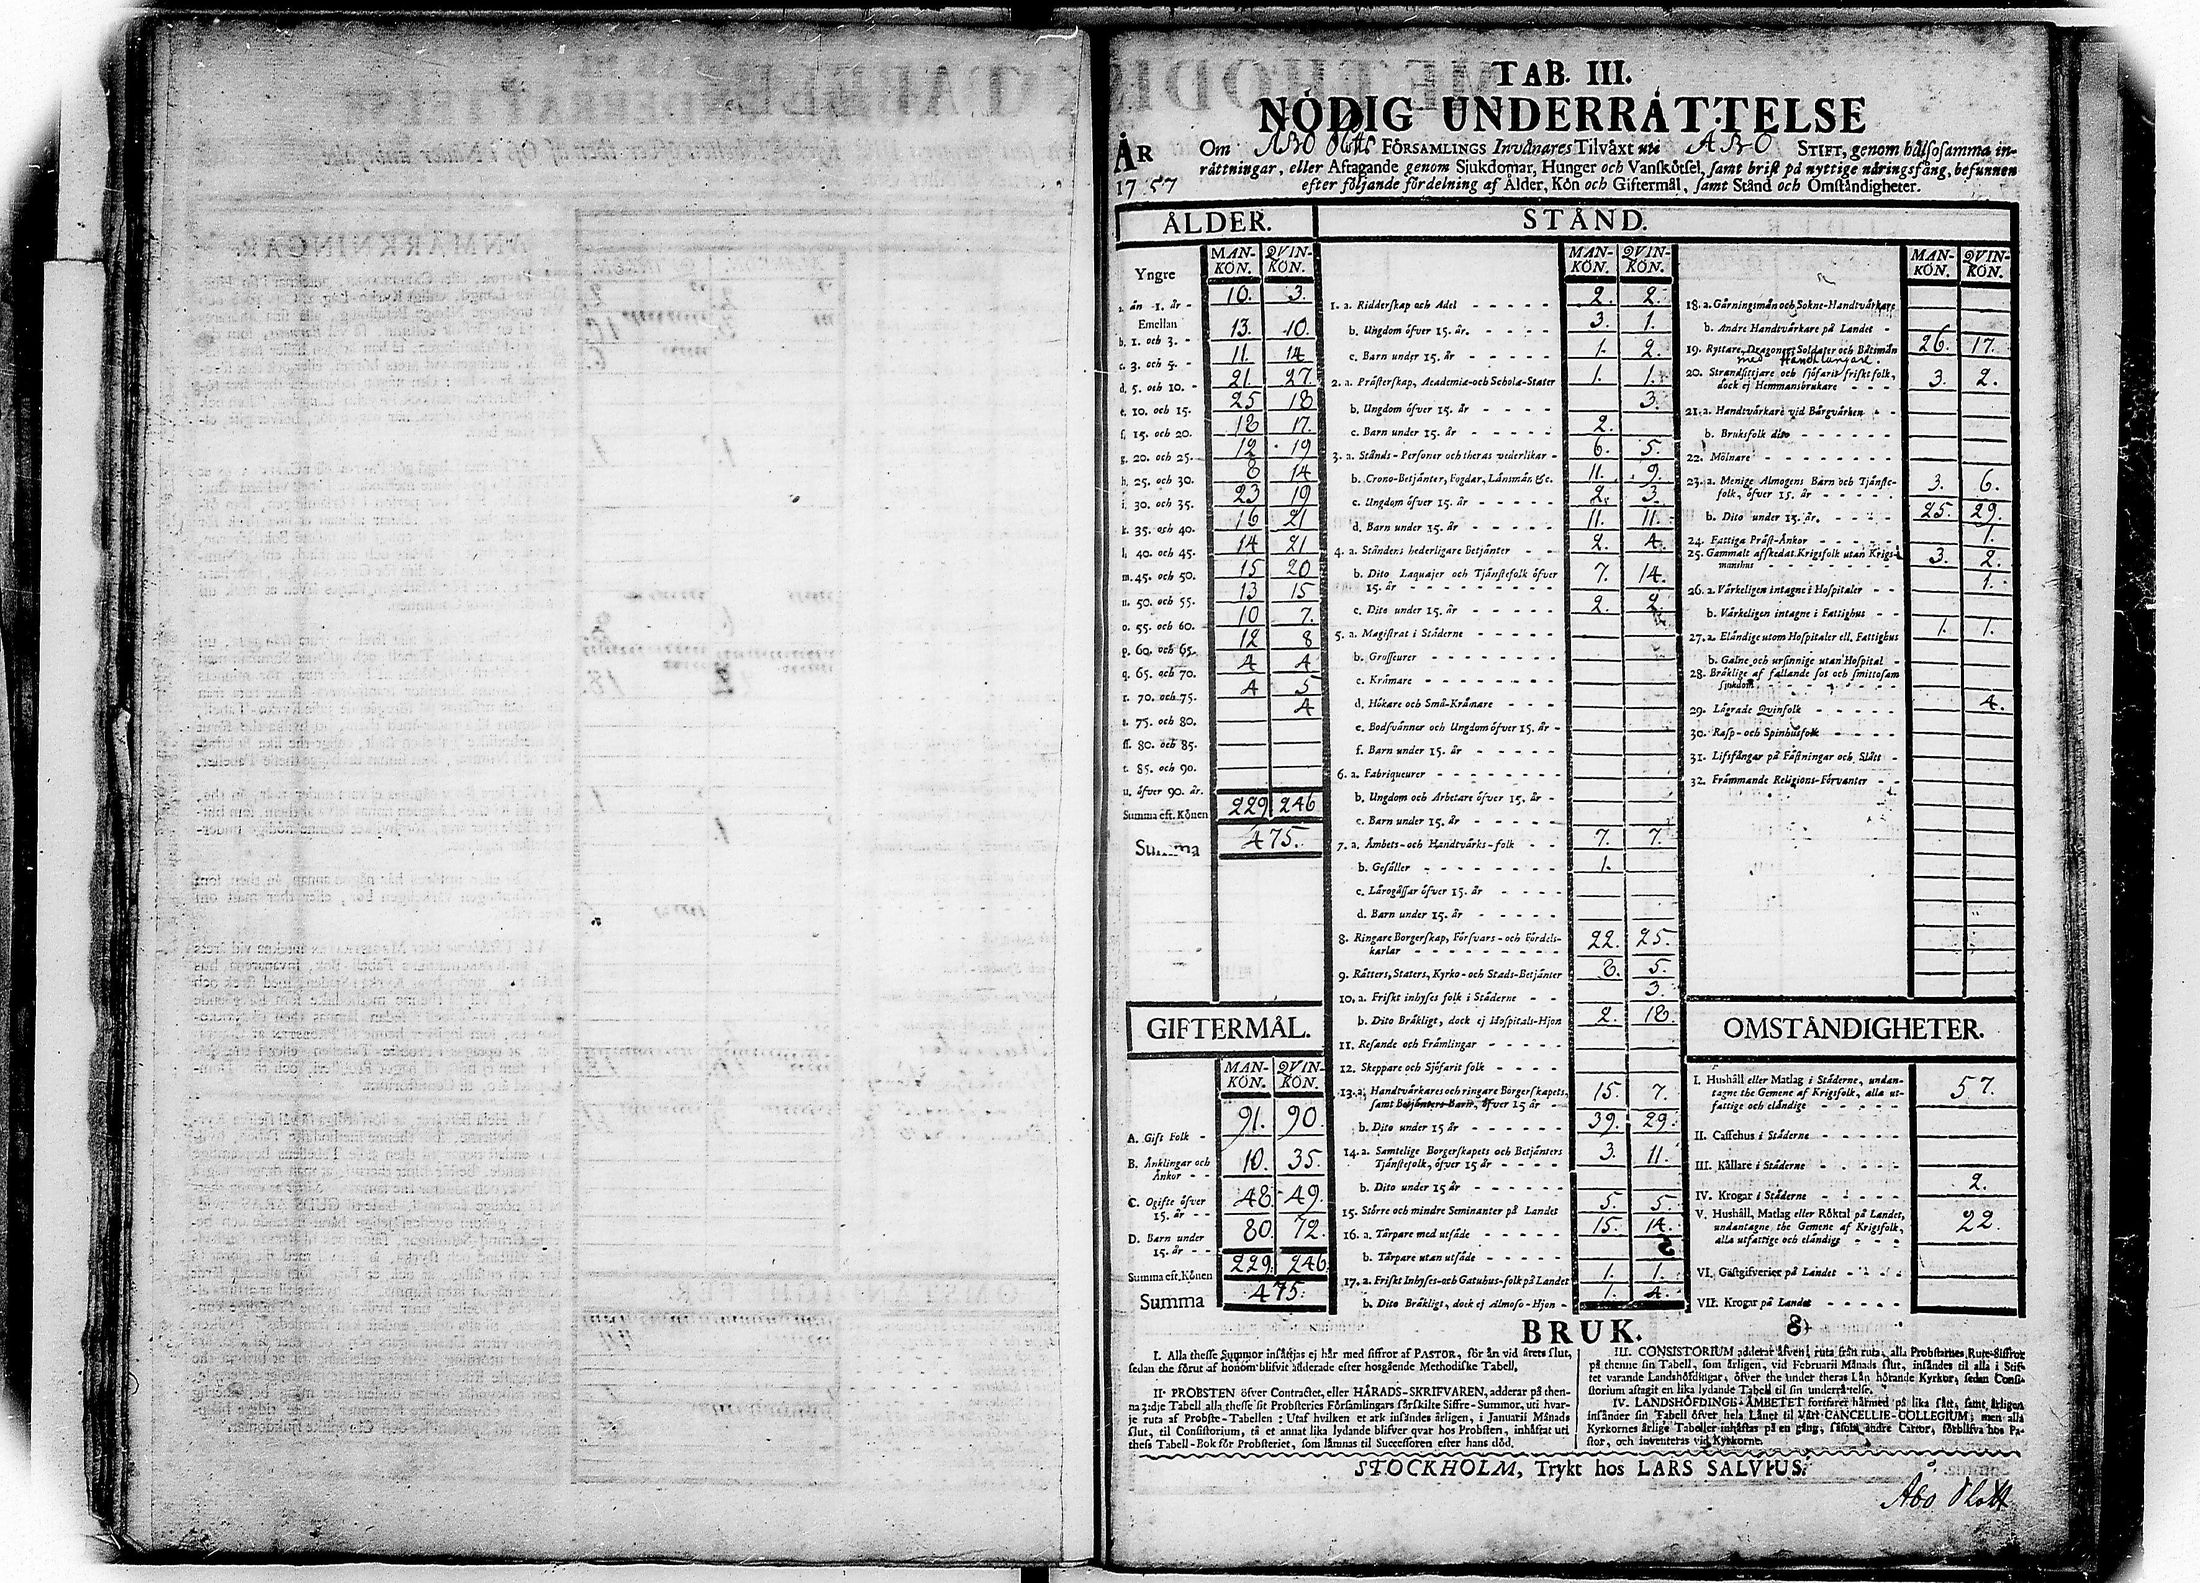 TAB. III.
NÖDIG UNDERRÄTTELSE
ÅR 1757
Om ABO Slotts FÖRSAMLINGS Invånares Tilväxt uti ABO STIFT, genom hälsosamma in-
rättningar, eller Aftagande genom Sjukdomar, Hunger och Vanskötsel, samt brist på nyttige näringsfång, befunnen
efter följande fördelning af Ålder, Kön och Giftermål, samt Stånd och Omständigheter.
ÅLDER.
MAN-KÖN. QVIN-KÖN.
Yngre
a. än 1. år - 10. 3.
Emellan
b. 1. och 3. - 13. 10.
c. 3. och 5. - 11. 14
d. 5. och 10. - 21. 27.
e. 10. och 15. 25 18
f. 15. och 20. 18 17.
g. 20. och 25. 12 19
h. 25. och 30. 8 14
i. 30. och 35. 23 19
k. 35. och 40. 16 21
l. 40. och 45. 14 21
m. 45. och 50. 15 20
n. 50. och 55. 13 15
o. 55. och 60. 10 7.
p. 60. och 65. 12 8
q. 65. och 70. 4 4
r. 70. och 75. 4 5
s. 75. och 80. 4
ss. 80. och 85.
t. 85. och 90.
u. öfver 90. år.
Summa eft. Könen 229 246
Summa 475.
GIFTERMÅL.
MAN-KÖN. QVIN-KÖN.
A. Gift Folk - 91. 90.
B. Änklingar och
Änkor - - 10. 35.
C. Ogifte öfver
15. år - - 48 49.
D. Barn under
15. år - - 80. 72.
Summa eft. Könen 229. 246
Summa 475.
STÅND.
MAN-KÖN. QVIN-KÖN.
1. a. Ridderskap och Adel - - - - - 2. 2.
b. Ungdom öfver 15. år. - - - - - 3. 1.
c. Barn under 15. år - - - - - 1. 2.
2. a. Prästerskap, Academiæ-och Scholæ-Stater 1. 1.
b. Ungdom öfver 15. år - - - - 3.
c. Barn under 15. år - - - - - 2.
3. a. Stånds-Personer och theras vederlikar - 6. 5.
b. Crono-Betjänter, Fogdar, Länsmän &c. 11. 9.
c. Ungdom öfver 15. år - - - - 2. 3.
d. Barn under 15. år - - - - - 11. 11.
4. a. Ståndens hederligare Betjänter - - 2. 4.
b. Dito Laquajer och Tjänstefolk öfver
15. år - - - - - - - - 7. 14.
c. Dito under 15. år - - - - - 2. 2.
5. a. Magistrat i Städerne - - - - -
b. Grosseurer - - - - - - -
c. Krämare - - - - - - -
d. Hökare och Små-Krämare - - -
e. Bodsvänner och Ungdom öfver 15. år -
f. Barn under 15. år - - - - -
6. a. Fabriqueurer - - - - - - -
b. Ungdom och Arbetare öfver 15. år -
c. Barn under 15. år - - - - -
7. a. Ämbets-och Handtvärks-folk - - 7. 7.
b. Gesäller - - - - - - - 1.
c. Lärogässar öfver 15. år - - - -
d. Barn under 15. år - - - - -
8. Ringare Borgerskap, Försvars-och Fördels-
karlar - - - - - - - - 22. 25.
9. Rätters, Staters, Kyrko-och Stads-Betjänter 8. 5.
10. a. Friskt inhyses folk i Städerne - - 3.
b. Dito Bräkligt, dock ej Hospitals-Hjon 2. 18.
11. Resande och Främlingar - - - - -
12. Skeppare och Sjöfarit folk - - - -
13. a. Handtvärkares och ringare Borgerskapets,
samt Betjänters Barn, öfver 15 år - 15. 7.
b. Dito under 15 år - - - - - 39. 29.
14. a. Samtelige Borgerskapets och Betjänters
Tjänstefolk, öfver 15 år - - - - 3. 11.
b. Dito under 15 år - - - - - -
15. Större och mindre Seminanter på Landet 5. 5.
16. a. Torpare med utsäde - - - - - 15. 14.
b. Torpare utan utsäde - - - - -
17. a. Friskt Inhyses-och Gatuhus-folk på Landet 1. 1.
b. Dito Bräkligt, dock ej Almoso-Hjon - 1. 4.
MAN-KÖN. QVIN-KÖN.
18. a. Gärningsmän och Sokne-Handtvärkare
b. Andre Handtvärkare på Landet -
19. Ryttare, Dragoner, Soldater och Båtsmän 26. 17.
med Handtlangare.
20. Strandsittjare och sjöfarit friskt folk,
dock ej Hemmansbrukare - - - 3. 2.
21. a. Handtvärkare vid Bärgvärken - -
b. Bruksfolk dito - - - - - -
22. Mölnare - - - - - - - -
23. a. Menige Almogens Barn och Tjänste-
folk, öfver 15. år - - - - - 3. 6.
b. Dito under 15. år. - - - - 25. 29.
24. Fattiga Präst-Änkor - - - - 1.
25. Gammalt afskedat Krigsfolk utan Krigs-
manshus - - - - - - - 3. 2.
26. a. Värkeligen intagne i Hospitaler - - 1.
b. Värkeligen intagne i Fattighus - -
27. a. Eländige utom Hospitaler ell. Fattighus 1. 1.
b. Galne och ursinnige utan Hospital -
28. Bräklige af fallande sot och smittosam
sjukdom - - - - - - - -
29. Lägrade Qvinfolk - - - - - 4.
30. Rasp-och Spinhusfolk - - - -
31. Lifsfångar på Fästningar och Slått -
32. Främmande Religions-Förvanter - -
OMSTÄNDIGHETER.
I. Hushåll eller Matlag i Städerne, undan-
tagne the Gemene af Krigsfolk, alla ut-
fattige och eländige - - - - - 57.
II. Caffehus i Städerne - - - - -
III. Källare i Städerne - - - - -
IV. Krogar i Städerne - - - - - 2.
V. Hushåll, Matlag eller Röktal på Landet,
undantagne the Gemene af Krigsfolk,
alla utfattige och eländige - - - 22.
VI. Gästgifverier på Landet - - - -
VII. Krogar på Landet - - - - -
BRUK.
I. Alla thesse Summor insättjas ej här med siffror af PASTOR, för än vid årets slut,
sedan the förut af honom blifvit adderade efter hosgående Methodiske Tabell.
II. PROBSTEN öfver Contractet, eller HÄRADS-SKRIFVAREN, adderar på then-
na 3:dje Tabell alla thesse sit Probsteries Församlingars särskilte Siffre-Summor, uti hvar-
je ruta af Probste-Tabellen: Utaf hvilken et ark insändes årligen, i Januarii Månads
slut, til Consistorium, tå et annat lika lydande blifver qvar hos Probsten, inhäftat uti
thess Tabell-Bok för Probsteriet, som lämnas til Successoren efter hans död.
III. CONSISTORIUM adderar äfven, ruta från ruta, alla Probstarnes Rute-Siffror
på thenne sin Tabell, som årligen, vid Februarii Månads slut, insändes til alla i Stif-
tet varande Landshöfdingar, öfver the under theras Län hörande Kyrkor, sedan Consi-
storium aftagit en lika lydande Tabell til sin underrättelse.
IV. LANDSHÖFDINGE-ÄMBETET fortfarer härmed på lika sätt, samt årligen
insänder sin Tabell öfver hela Länet til Vårt CANCELLIE-COLLEGIUM; men alla
Kyrkornes årlige Tabeller inhäftas på en gång, såsom andre Cartor, förblifva hos Pa-
stor, och inventeras vid Kyrkorne.
STOCKHOLM, Trykt hos LARS SALVIUS.
Abo Slott